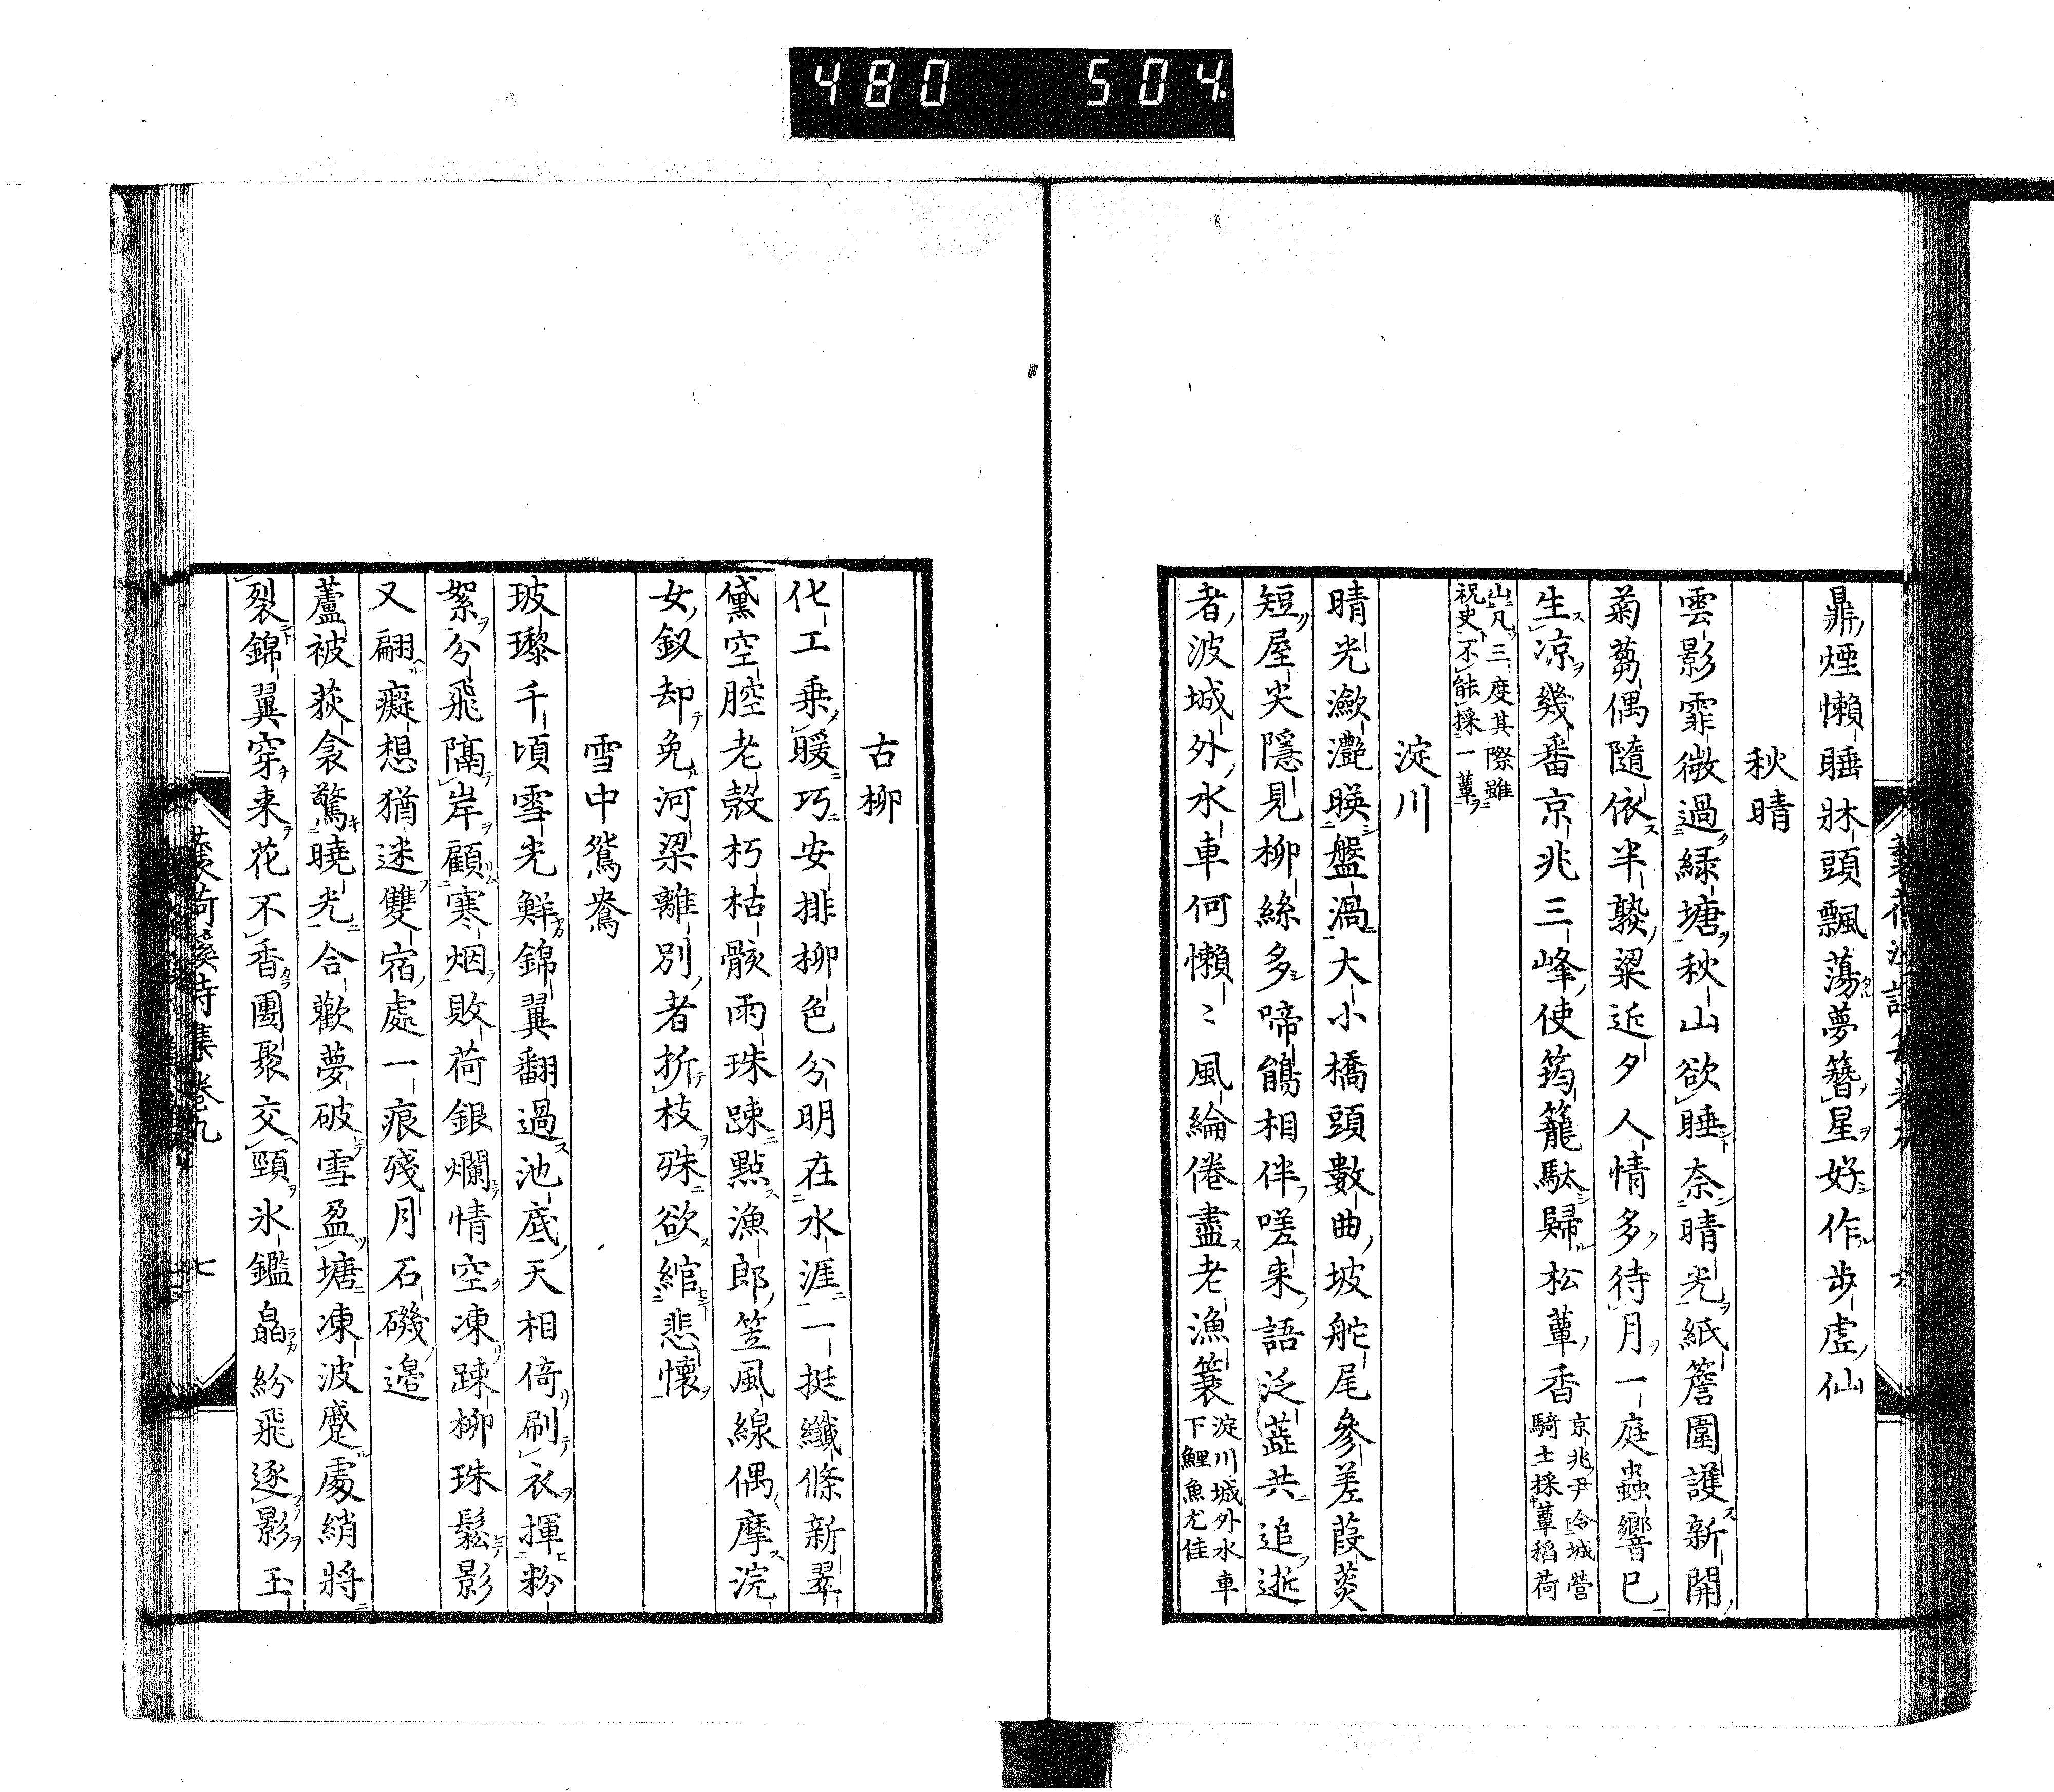 480 504.
鼎煙懶睡牀頭飄蕩夢簪星好作步虛仙
秋晴
雲影霏微過綠塘秋山欲睡奈晴光紙簷圍護新開
菊蒭偶隨依半褻粱近夕人情多待月一庭蟲響已
生凉幾番京兆三峰使筠籠馱歸松蕈香京兆尹令城營騎士採蕈稻荷
山凡三度其際雖祝史不能採一蕈
淀川
晴光瀲灧暎盤渦大小橋頭數曲坡舵尾參差葭菼
短屋尖隱見柳絲多啼鵑相伴嗟来語泛蓝共追逝
者波城外水車何懶〻風綸倦盡老漁簑淀川城外水車下鯉魚尤佳
古柳
化工乗暖巧安排柳色分明在水涯一挺纖條新翠
黛空腔老殼朽枯骸雨珠踈點漁郎笠風線偶摩浣
女釵却免河梁離別者折枝殊欲綰悲懷
雪中鴛鴦
玻瓈千頃雪光鮮錦翼翻過池底天相倚刷衣揮粉
絮分飛隔岸顧寒烟敗荷銀爛情空凍踈柳珠鬆影
又翩癡想猶迷雙宿處一痕殘月石磯邊
蘆被荻衾驚曉光合歡夢破雪盈塘凍波蹙處綃將
裂錦翼穿来花不香團聚交頸氷鑑皛紛飛逐影玉
荷溪詩集卷九 七